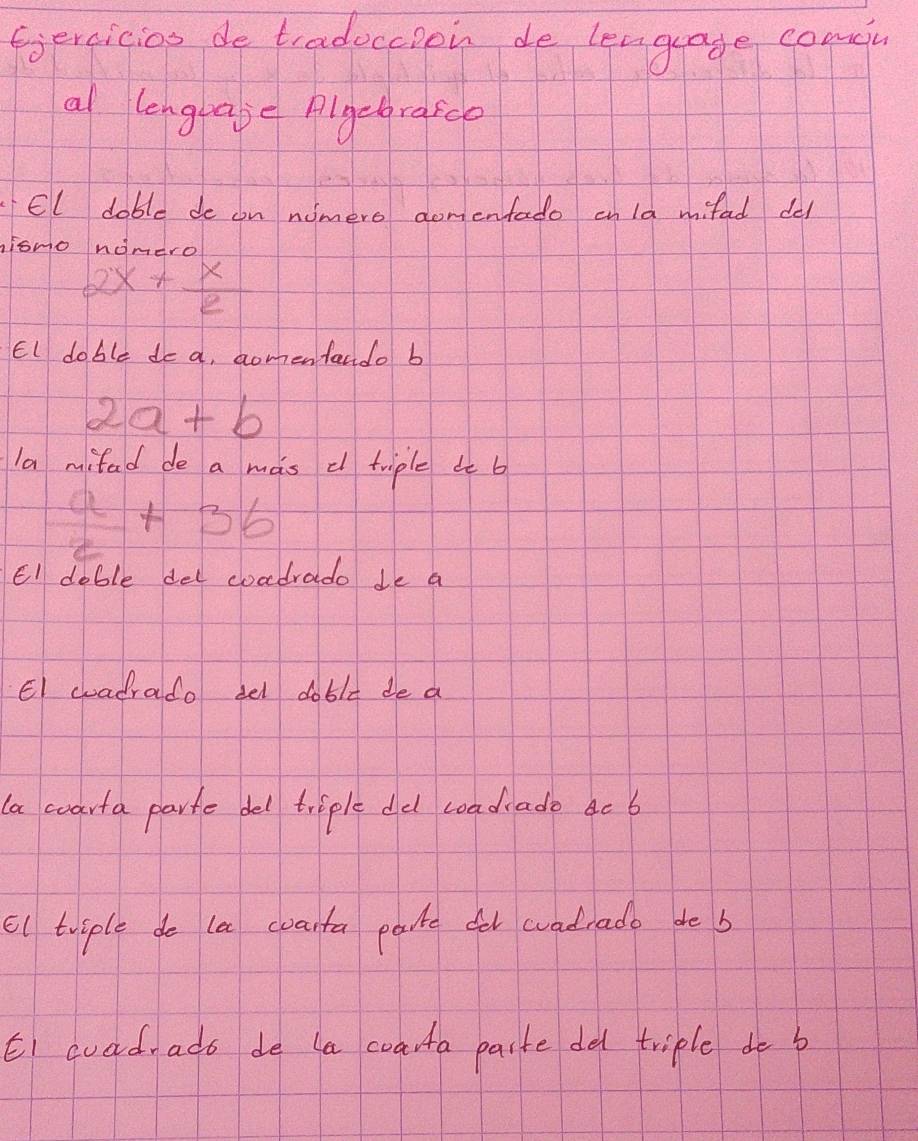 Ejercicios de traducción de lenguaje común
al lenguaje Algebraico
El doble de un número aumentado en la mitad del
mismo número
2x + x/2
El doble de a, aumentando b
2a + b
la mitad de a más el triple de b
a/2 + 3b
El doble del cuadrado de a
El cuadrado del doble de a
la cuarta parte del triple del cuadrado de b
El triple de la cuarta parte del cuadrado de b
El cuadrado de la cuarta parte del triple de b